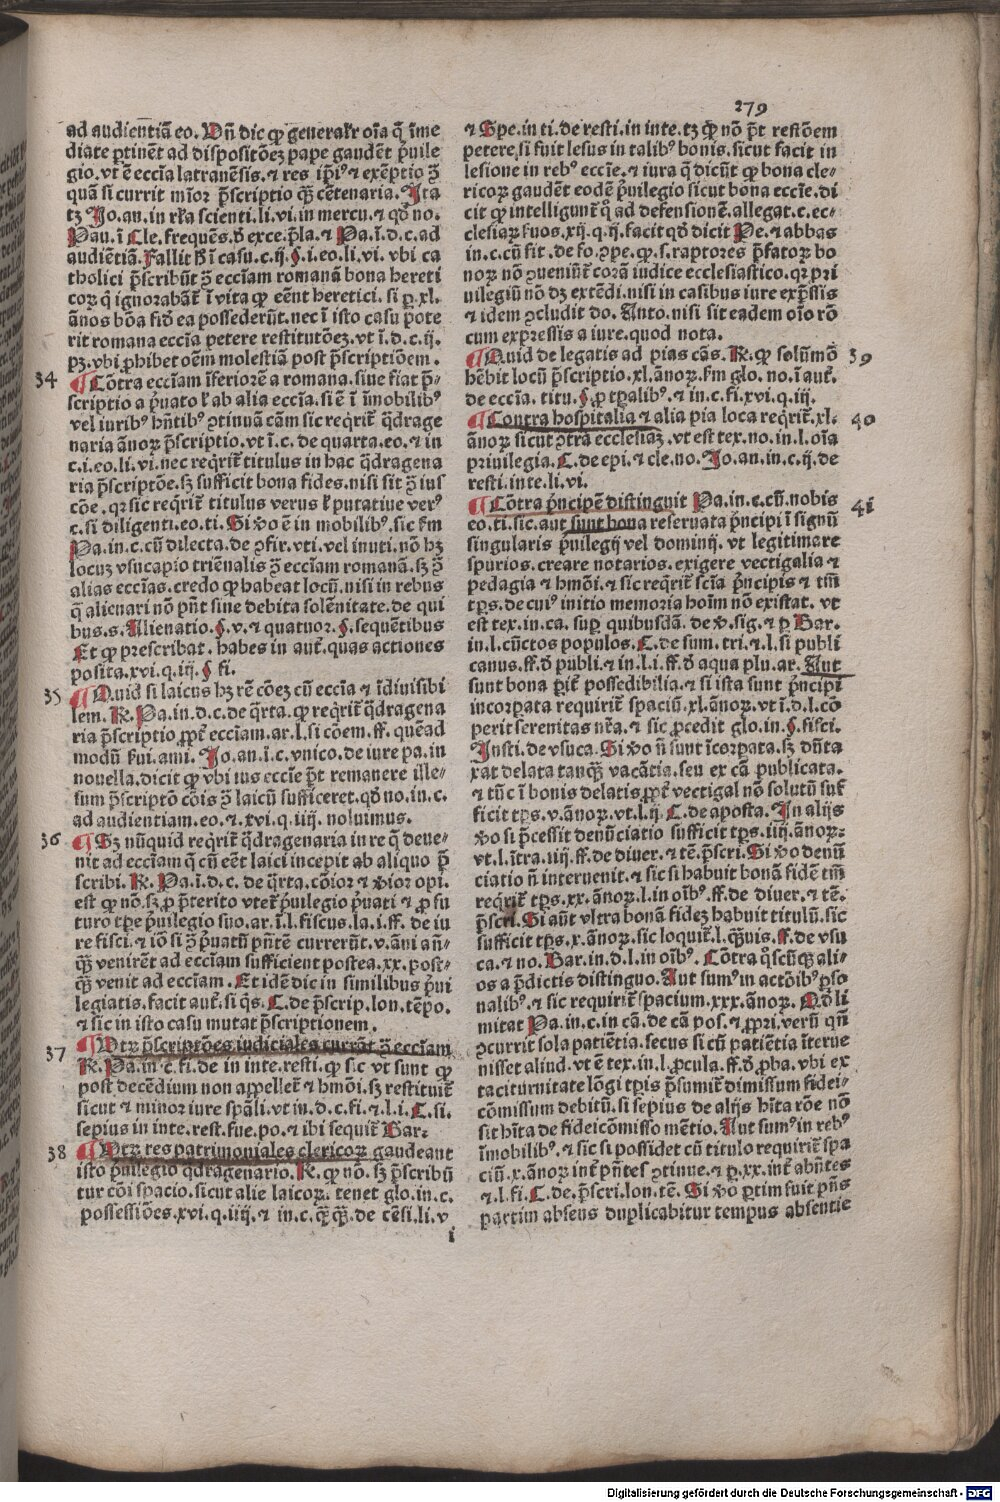 279
ad audientiā eo. Dn̄ dic ꝙ generalr̄ oīa q̄ ime
diate ꝑtinēt ad dispositōez pape gaudēt p̄uile
gio. vt ē eccīa latranēsis. ⁊ res ip̄iꝰ ⁊ exēptio ꝯ̄
quā si currit mīor p̄scriptio q̄ꝫ cētenaria. Ita
tꝫ Jo. an. in rl'a scienti. li. vi. in mercu. ⁊ qd̄ no.
Pau. ī Cle. frequēs. d̄ exce. p̄la. ⁊ Pa. ī. d. c. ad
audiētiā. Fallit ī casu. c. ij. §. i. eo. li. vi. vbi ca
tholici p̄scribūt ꝯ̄ eccīam romanā bona hereti
coꝝ q̄ ignorabāt̄ ī vita ꝙ eēnt heretici. si ꝑ. xl.
ānos bōa fid̄ ea possederūt. nec ī isto casu pote
rit romana eccīa petere restitutōez. vt ī. d. c. ij.
pꝫ. vbi ꝓhibet oēm molestiā post p̄scriptiōem.
34 ¶ Cōtra eccīam īferiorē a romana. siue fiat p̄-
scriptio a p̄uato l' ab alia eccīa. si ē ī īmobilibꝰ
vel iuribꝰ hn̄tibꝰ ꝯtinuā cām sic reqrit̄ q̄drage
naria ānoꝝ p̄scriptio. vt ī. c. de quarta. eo. ⁊ in
c. i. eo. li. vi. nec reqrit̄ titulus in hac q̄dragena
ria p̄scriptōe. sꝫ sufficit bona fides. nisi sit ꝯ̄ ius
cōe. qꝛ sic reqrit̄ titulus verus l' putatiue verꝰ
c. si diligenti. eo. ti. Si v̄o ē in mobilibꝰ. sic km̄
Pa. in. c. cū dilecta. de ꝯfir. vti. vel inuti. nō hꝫ
locuꝫ vsucapio triēnalis ꝯ̄ eccīam romanā. sꝫ ꝯ̄
alias eccīas. credo ꝙ habeat locū. nisi in rebus
q̄ alienari nō pn̄t sine debita solēnitate. de qui
bus. s. Alienatio. §. v. ⁊ quatuor. §. sequētibus
Et ꝙ prescribat. habes in aut̄. quas actiones
posita. xvi. q. iij. § fi.
35 ¶ Quid si laicus hꝫ rē cōeꝫ cū eccīa ⁊ īdiuisibi
lem. R̄. Pa. in. d. c. de q̄rta. ꝙ reqrit̄ q̄dragena
ria p̄scriptio ꝓpt̄ eccīam. ar. l. si cōem. ff. quēad
modū ſ'ui. ami. Jo. an. ī. c. vnico. de iure pa. in
nouella. dicit ꝙ vbi ius eccīe p̄t remanere ille-
sum p̄scriptō cōis ꝯ̄ laicū sufficeret. qd̄ no. in. c.
ad audientiam. eo. ⁊. xvi. q. iiij. nolumus.
36 ¶ Sꝫ nūquid reqrit̄ q̄dragenaria in re q̄ deue-
nit ad eccīam q̄ cū eēt laici incepit ab aliquo p̄
scribi. R̄. Pa. ī. d. c. de q̄rta. cōior ⁊ v̄ior opi.
est ꝙ nō. sꝫ ꝓ p̄terito vteť p̄uilegio p̄uati ⁊ ꝓ fu
turo tp̄e p̄uilegio suo. ar. ī. l. fiscus. la. i. ff. de iu
re fisci. ⁊ iō si ꝯ̄ p̄uatū pn̄tē currerūt. v. āni an̄-
q̄ꝫ venirēt ad eccīam sufficient postea. xx. post-
q̄ꝫ venit ad eccīam. Et idē dic in similibus p̄ui
legiatis. facit aut̄. si q̄s. C. de p̄scrip. lon. tēpo.
⁊ sic in isto casu mutat̄ p̄scriptionem.
37 ¶ Utꝝ p̄scriptōes iudiciales currāt ꝯ̄ eccīam
R̄. Pa. in. c. fi. de in inte. resti. ꝙ sic vt sunt ꝙ
post decēdium non appelleť ⁊ hmōi. sꝫ restituit̄
sicut ⁊ minor iure spāli. vt in. d. c. fi. ⁊. l. i. C. si.
sepius in inte. rest. fue. po. ⁊ ibi sequit̄ Bar:
38 ¶ Utꝝ res patrimoniales clericoꝝ gaudeant
isto p̄uilegio q̄dragenario. R̄. ꝙ nō. sꝫ p̄scribūt
tur cōi spacio. sicut alie laicoꝝ. tenet glo. in. c.
possessiōes. xvi. q. iiij. ⁊ in. c. q̄ꝫq̄ꝫ. de cēsi. li. v
i
⁊ Spe. in ti. de resti. in inte. tꝫ ꝙ nō p̄t restōem
petere, si fuit lesus in talibꝰ bonis. sicut facit in
lesione in rebꝰ eccīe. ⁊ iura q̄ dicūt ꝙ bona cle-
ricoꝝ gaudēt eodē p̄uilegio sicut bona eccīe. di
cit ꝙ intelligunt̄ q̊ ad defensionē. allegat. c. ec-
clesiaꝝ ſ'uos. xij. q. ij. facit qd̄ dicit Pe. ⁊ abbas
in. c. cū sit. de fo. ꝯpe. ꝙ. s. raptores p̄fatoꝝ bo
noꝝ nō ꝯueniūt̄ corā iudice ecclesiastico. qꝛ pri
uilegiū nō dꝫ extēdi. nisi in casibus iure exp̄ssis
⁊ idem ꝯcludit do. Anto. nisi sit eadem oīo rō
cum expressis a iure. quod nota.
39 ¶ Quid de legatis ad pias cās. R̄. ꝙ solūmō
hēbit locū p̄scriptio. xl. ānoꝝ. km̄ glo. no. ī aut̄.
de eccīa. titu. § ꝓ tꝑalibꝰ. ⁊ in. c. fi. xvi. q. iij.
40 ¶ Contra hospitalia ⁊ alia pia loca reqrit̄. xl.
ānoꝝ sicut ꝯtra ecclesiaꝫ. vt est tex. no. in. l. oīa
priuilegia. C. de epi. ⁊ cle. no. Jo. an. in. c. ij. de
resti. inte. li. vi.
41 ¶ Cōtra p̄ncipē distinguit Pa. in. c. cū. nobis
eo. ti. sic. aut sunt bona reseruata p̄ncipi ī signū
singularis p̄uilegij vel dominij. vt legitimare
spurios. creare notarios. exigere vectigalia ⁊
pedagia ⁊ hmōi. ⁊ sic reqrit̄ scīa p̄ncipis ⁊ tm̄
tp̄s. de cuiꝰ initio memoria hoīm nō existat. vt
est tex. in. ca. suꝑ quibusdā. de v̄. sig. ⁊ ꝑ Bar.
in. l. cūctos populos. C. de sum. tri. ⁊. l. si publi
canus. ff. d̄ publi. ⁊ in. l. i. ff. d̄ aqua plu. ar. Aut
sunt bona ꝑit̄ possedibilia. ⁊ si ista sunt p̄ncipi
incorꝑata requirit̄ spaciū. xl. ānoꝝ. vt ī. d. l. cō
perit serenitas nr̄a. ⁊ sic ꝓcedit glo. in. §. fisci.
Insti. de vsuca. Si v̄o n̄ sunt īcorꝑata. sꝫ dūta
xat delata tanq̄ꝫ vacātia. seu ex cā publicata.
⁊ tūc ī bonis delatis ꝓpt̄ vectigal nō solutū suf
ficit tp̄s. v. ānoꝝ. vt. l. ij. C. de aposta. In alijs
v̄o si p̄cessit denūciatio sufficit tp̄s. iiij. ānoꝝ:
vt. l. ītra. iiij. ff. de diuer. ⁊ tē. p̄scri. Si v̄o denū
ciatio n̄ interuenit. ⁊ sic si habuit bonā fidē tm̄
reqrit̄ tp̄s. xx. ānoꝝ. l. in oībꝰ. ff. de diuer. ⁊ tē.
p̄scri. Si aūt vltra bonā fideꝫ habuit titulū. sic
sufficit tp̄s. x. ānoꝝ. sic loquit̄. l. q̄ꝫuis. ff. de vsu
ca. ⁊ no. Bar. in. d. l. in oībꝰ. Cōtra q̊scūqꝫ ali-
os a p̄dictis distinguo. Aut sumꝰ in actōibꝰ ꝑso
nalibꝰ. ⁊ sic requirit̄ spacium. xxx. ānoꝝ. Qd̄ li
mitat Pa. in. c. in cā. de cā pos. ⁊ ꝓpri. verū qn̄
ꝯcurrit sola patiētia. secus si cū patiētia īterue
nisset aliud. vt ē tex. in. l. ꝓcula. ff. d̄ ꝓba. vbi ex
taciturnitate lōgi tꝑis p̄sumit̄ dimissum fidei-
cōmissum debitū. si sepius de alijs hīta rōe nō
sit hīta de fideicōmisso mētio. Aut sumꝰ in rebꝰ
īmobilibꝰ. ⁊ sic si possidet cū titulo requirit̄ spa
ciū. x. ānoꝝ int̄ pn̄tes ꝯtinue. ⁊ ꝑ. xx. int̄ abn̄tes
⁊. l. fi. C. de. p̄scri. lon. tē. Si v̄o ꝑtim fuit pn̄s
partim absens duplicabitur tempus absentie
Digitalisierung gefördert durch die Deutsche Forschungsgemeinschaft - DFG